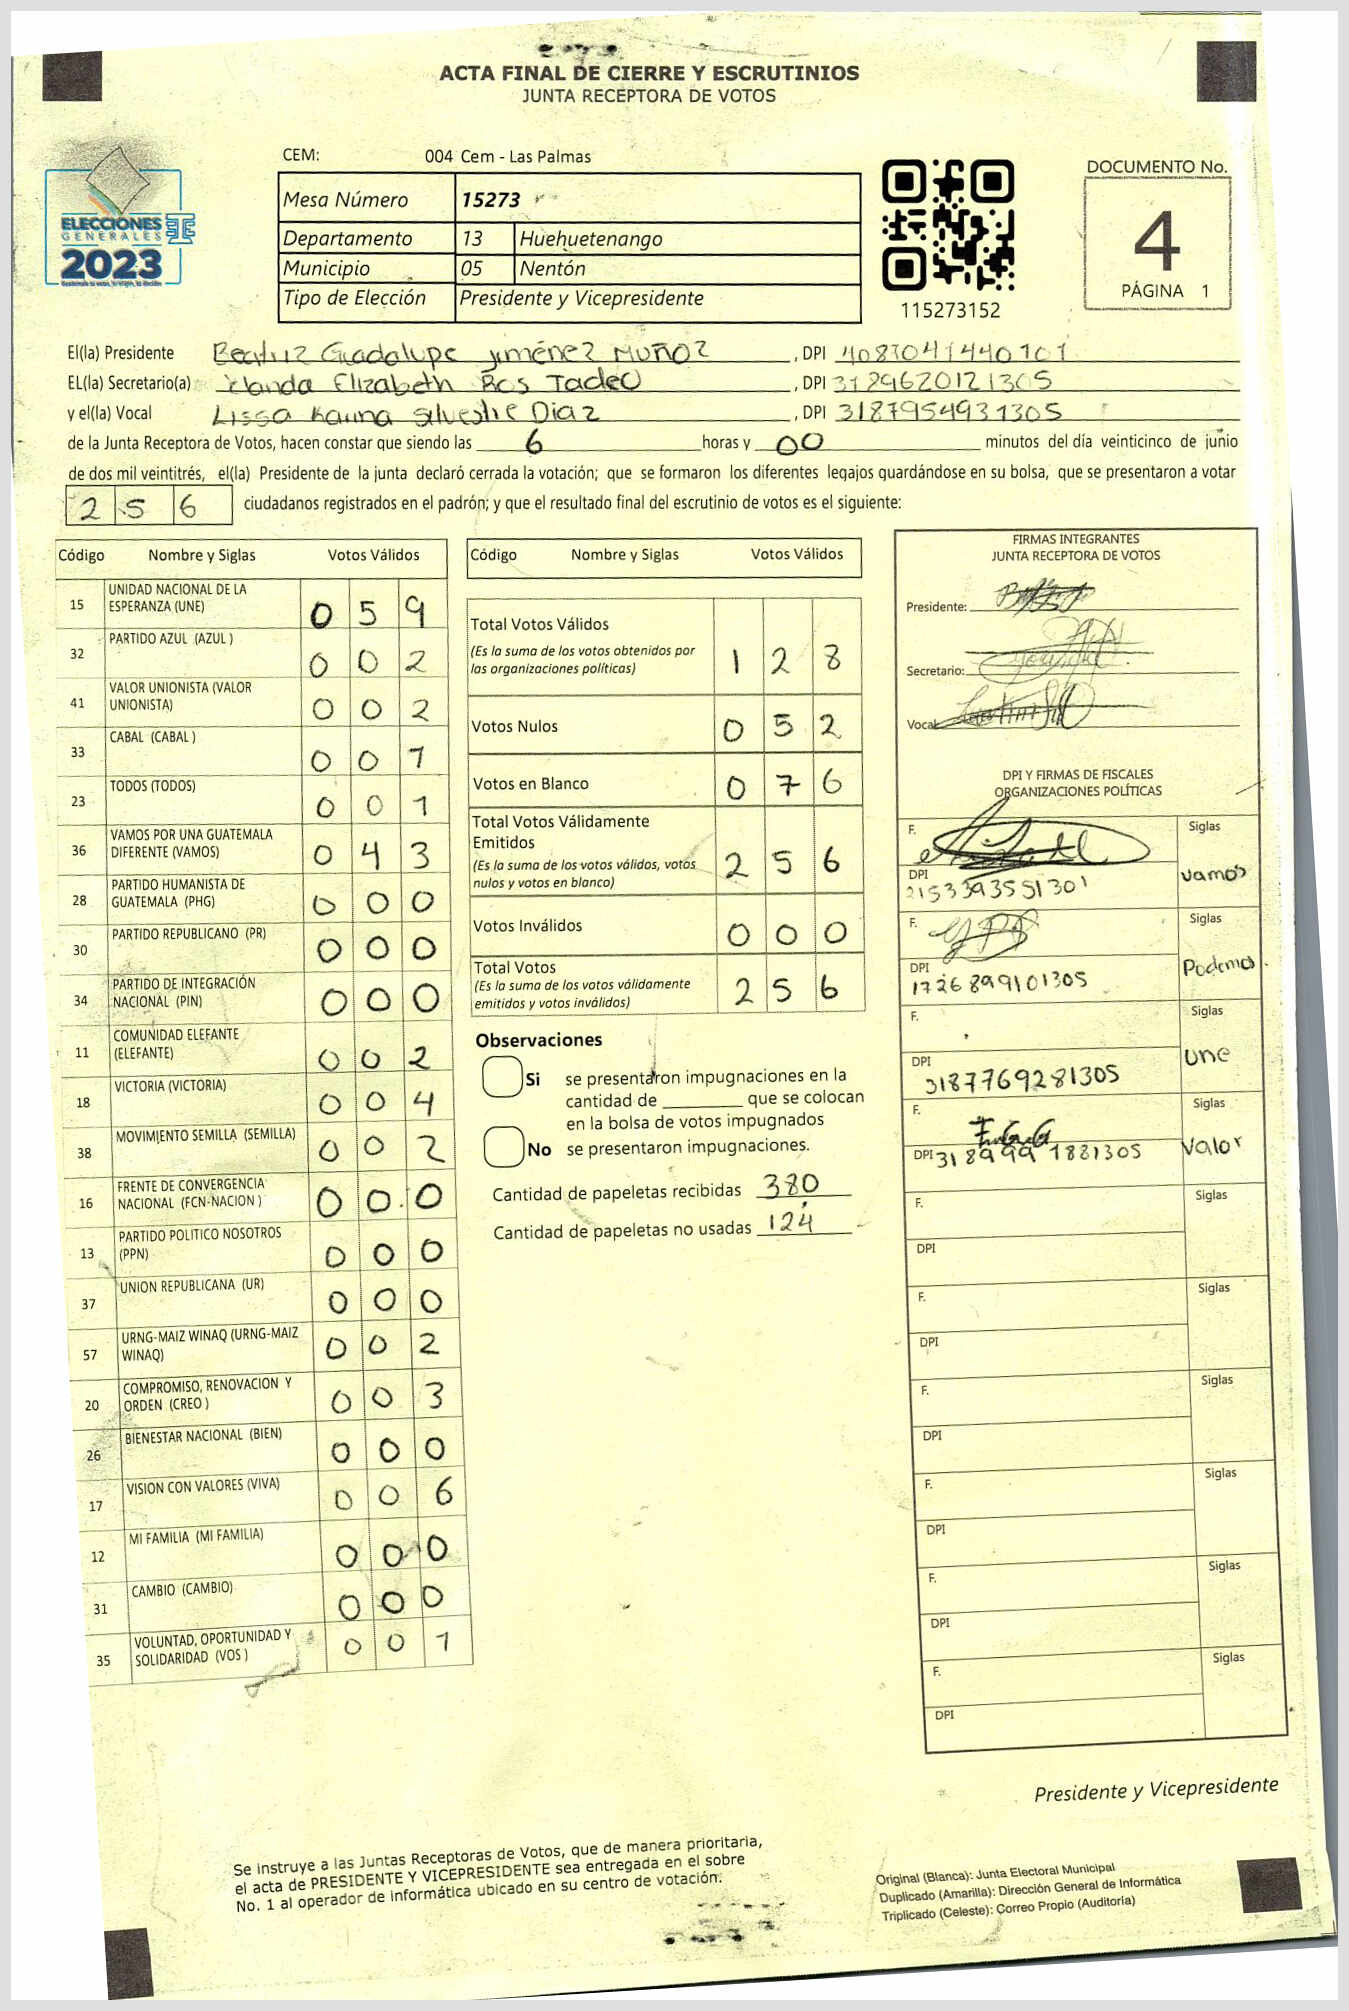 ACTA FINAL DE CIERRE Y ESCRUTINIOS
JUNTA RECEPTORA DE VOTOS
ELECCIONES
GENERALES
2023
CEM: 004 Cem - Las Palmas
Mesa Número 15273
Departamento 13 Huehuetenango
Municipio 05 Nentón
Tipo de Elección Presidente y Vicepresidente
115273152
DOCUMENTO No.
4
PÁGINA 1
El(la) Presidente Beatriz Guadalupe Jiménez Muñoz, DPI
EL(la) Secretario(a) Elizabeth Ros Tadeo, DPI 3189620121305
y el(la) Vocal Lissa Karina Silvestre Diaz, DPI 3187954931305
de la Junta Receptora de Votos, hacen constar que siendo las 6 horas y 00 minutos del día veinticinco de junio
de dos mil veintitrés, el(la) Presidente de la junta declaró cerrada la votación; que se formaron los diferentes legajos guardándose en su bolsa, que se presentaron a votar
256 ciudadanos registrados en el padrón; y que el resultado final del escrutinio de votos es el siguiente:
Código Nombre y Siglas Votos Válidos
15 UNIDAD NACIONAL DE LA ESPERANZA (UNE) 0 5 9
32 PARTIDO AZUL (AZUL ) 0 0 2
41 VALOR UNIONISTA (VALOR UNIONISTA) 0 0 2
33 CABAL (CABAL ) 0 0 1
23 TODOS (TODOS) 0 0 1
36 VAMOS POR UNA GUATEMALA DIFERENTE (VAMOS) 0 4 3
28 PARTIDO HUMANISTA DE GUATEMALA (PHG) 0 0 0
30 PARTIDO REPUBLICANO (PR) 0 0 0
34 PARTIDO DE INTEGRACIÓN NACIONAL (PIN) 0 0 0
11 COMUNIDAD ELEFANTE (ELEFANTE) 0 0 2
18 VICTORIA (VICTORIA) 0 0 4
38 MOVIMIENTO SEMILLA (SEMILLA) 0 0 2
16 FRENTE DE CONVERGENCIA NACIONAL (FCN-NACION ) 0 0 0
13 PARTIDO POLITICO NOSOTROS (PPN) 0 0 0
37 UNION REPUBLICANA (UR) 0 0 0
57 URNG-MAIZ WINAQ (URNG-MAIZ WINAQ) 0 0 2
20 COMPROMISO, RENOVACION Y ORDEN (CREO ) 0 0 3
26 BIENESTAR NACIONAL (BIEN) 0 0 0
17 VISION CON VALORES (VIVA) 0 0 6
12 MI FAMILIA (MI FAMILIA) 0 0 0
31 CAMBIO (CAMBIO) 0 0 0
35 VOLUNTAD, OPORTUNIDAD Y SOLIDARIDAD (VOS ) 0 0 1
Código Nombre y Siglas Votos Válidos
Total Votos Válidos 1 2 8
(Es la suma de los votos obtenidos por
las organizaciones políticas)
Votos Nulos 0 5 2
Votos en Blanco 0 7 6
Total Votos Válidamente
Emitidos 2 5 6
(Es la suma de los votos válidos, votos
nulos y votos en blanco)
Votos Inválidos 0 0 0
Total Votos 2 5 6
(Es la suma de los votos válidamente
emitidos y votos inválidos)
Observaciones
Si se presentaron impugnaciones en la
cantidad de ________ que se colocan
en la bolsa de votos impugnados
No se presentaron impugnaciones.
Cantidad de papeletas recibidas 380
Cantidad de papeletas no usadas 124
FIRMAS INTEGRANTES
JUNTA RECEPTORA DE VOTOS
Presidente:
Secretario:
Vocal
DPI Y FIRMAS DE FISCALES
ORGANIZACIONES POLÍTICAS
F. Siglas
DPI 2153393551301 vamos
F. Siglas
DPI 1726899101305 Podemos
F. Siglas
DPI 3187769281305 une
F. Siglas
DPI 318999 1881305 valor
F. Siglas
DPI
F. Siglas
DPI
F. Siglas
DPI
F. Siglas
DPI
F. Siglas
DPI
F. Siglas
DPI
Presidente y Vicepresidente
Se instruye a las Juntas Receptoras de Votos, que de manera prioritaria,
el acta de PRESIDENTE Y VICEPRESIDENTE sea entregada en el sobre
No. 1 al operador de informática ubicado en su centro de votación.
Original (Blanca): Junta Electoral Municipal
Duplicado (Amarilla): Dirección General de Informática
Triplicado (Celeste): Correo Propio (Auditoría)